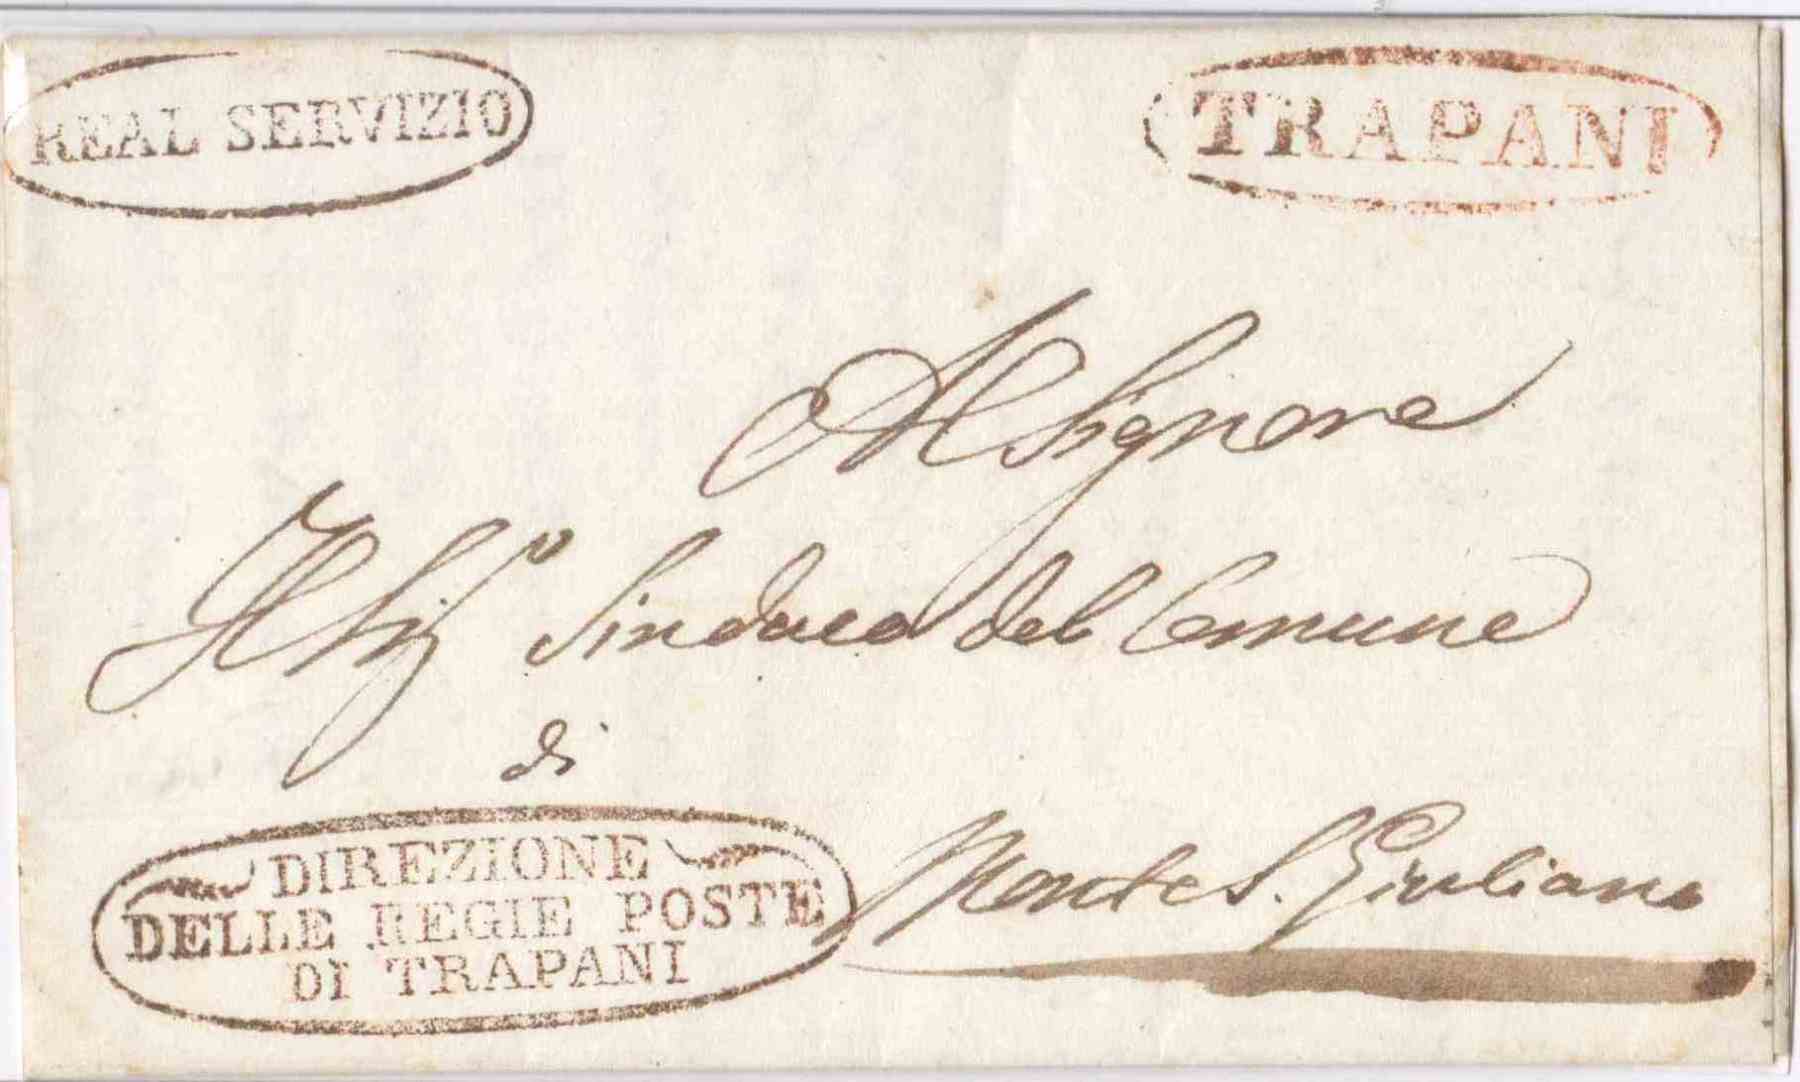 REAL SERVIZIO
TRAPANI
Al Signore
Il Sig.º Sindaco del Comune
di
Monte S. Giuliano
DIREZIONE
DELLE REGIE POSTE
DI TRAPANI